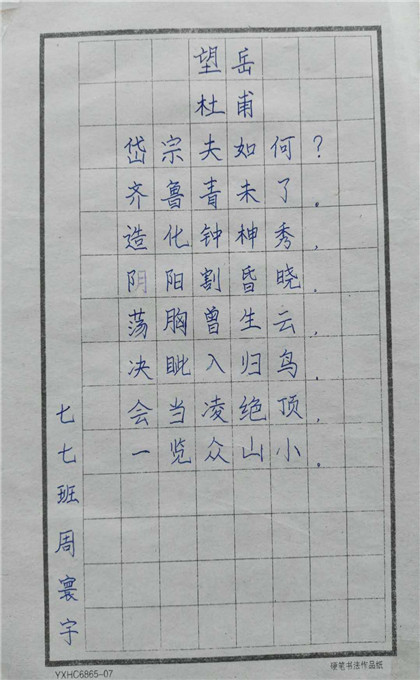 望岳
杜甫
岱宗夫如何？
齐鲁青未了。
造化钟神秀，
阴阳割昏晓。
荡胸曾生云，
决眦入归鸟。
会当凌绝顶，
一览众山小。
七七班周寰宇
YXHC6865-07
硬笔书法作品纸